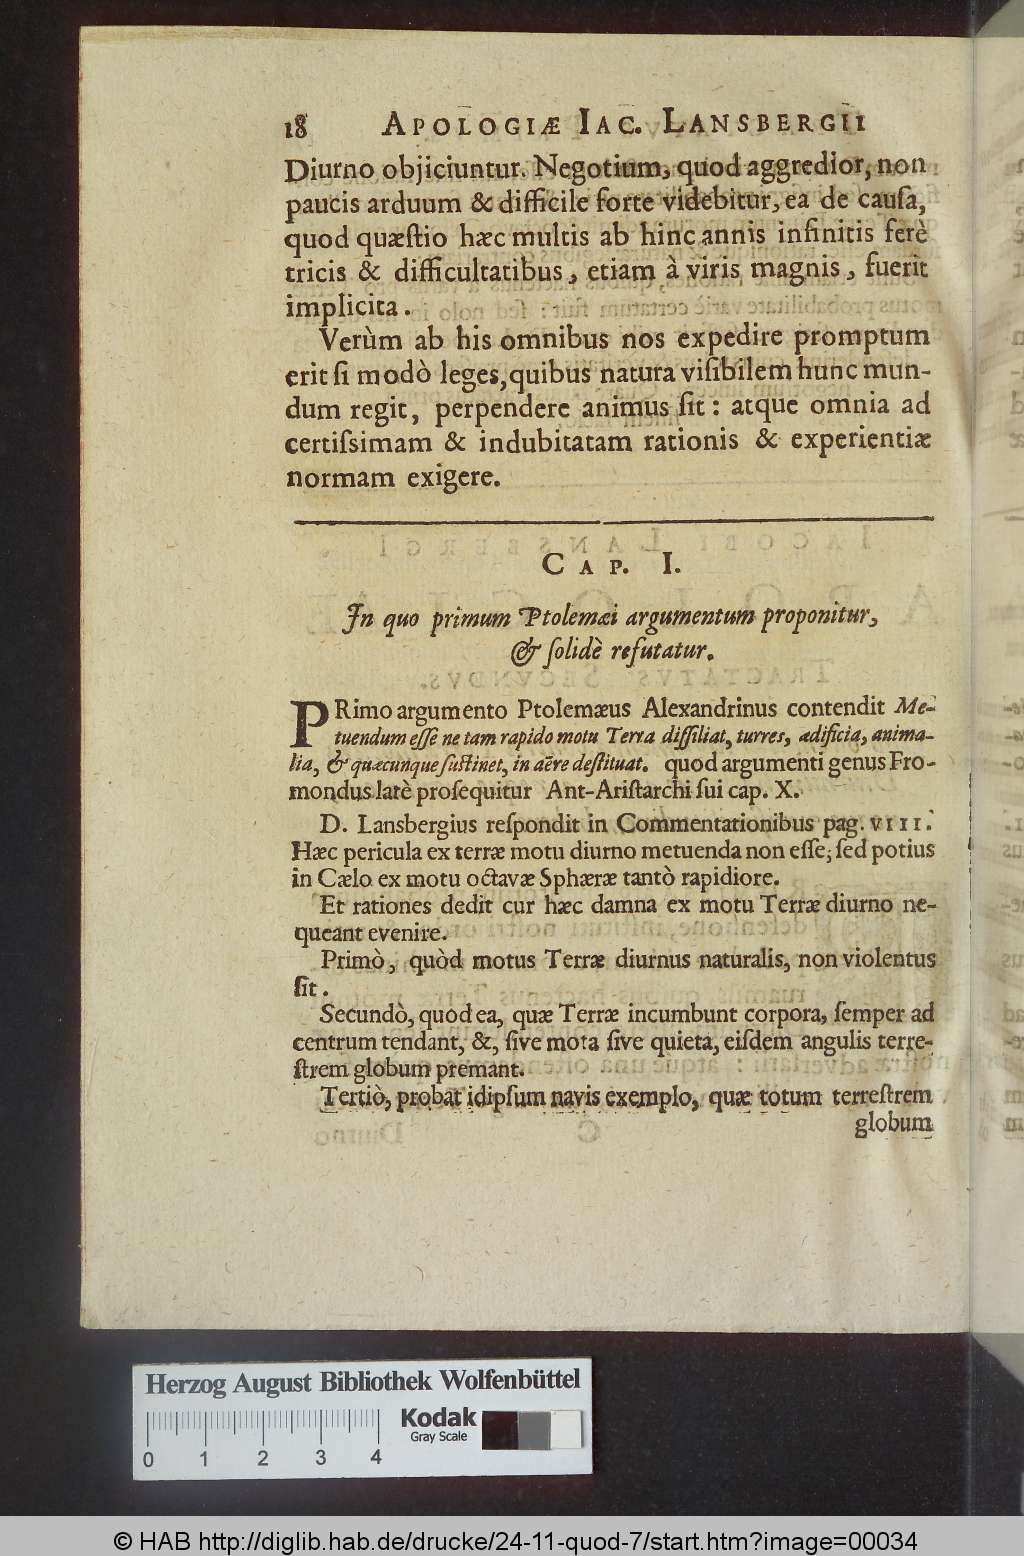 18 APOLOGIÆ IAC. LANSBERGII
Diurno objiciuntur. Negotium, quod aggredior, non
paucis arduum & difficile forte videbitur, ea de cauſa,
quod quæſtio hæc multis ab hinc annis infinitis ferè
tricis & difficultatibus, etiam à viris magnis, fuerit
implicita.
Verùm ab his omnibus nos expedire promptum
erit ſi modò leges, quibus natura viſibilem hunc mun-
dum regit, perpendere animus ſit: atque omnia ad
certiſsimam & indubitatam rationis & experientiæ
normam exigere.
CAP. I.
In quo primum Ptolemæi argumentum proponitur,
& ſolidè refutatur.
PRimo argumento Ptolemæus Alexandrinus contendit Me-
tuendum eſſe ne tam rapido motu Terra diſſiliat, turres, ædificia, anima-
lia, & quæcunque ſuſtinet, in aëre deſtituat. quod argumenti genus Fro-
mondus latè proſequitur Ant-Ariſtarchi ſui cap. X.
D. Lansbergius reſpondit in Commentationibus pag. VIII.
Hæc pericula ex terræ motu diurno metuenda non eſſe; ſed potius
in Cælo ex motu octavæ Sphæræ tantò rapidiore.
Et rationes dedit cur hæc damna ex motu Terræ diurno ne-
queant evenire.
Primò, quòd motus Terræ diurnus naturalis, non violentus
ſit.
Secundò, quod ea, quæ Terræ incumbunt corpora, ſemper ad
centrum tendant, &, ſive mota ſive quieta, eiſdem angulis terre-
ſtrem globum premant.
Tertiò, probat idipſum navis exemplo, quæ totum terreſtrem
globum
Herzog August Bibliothek Wolfenbüttel
Kodak
Gray Scale
0 1 2 3 4
© HAB http://diglib.hab.de/drucke/24-11-quod-7/start.htm?image=00034